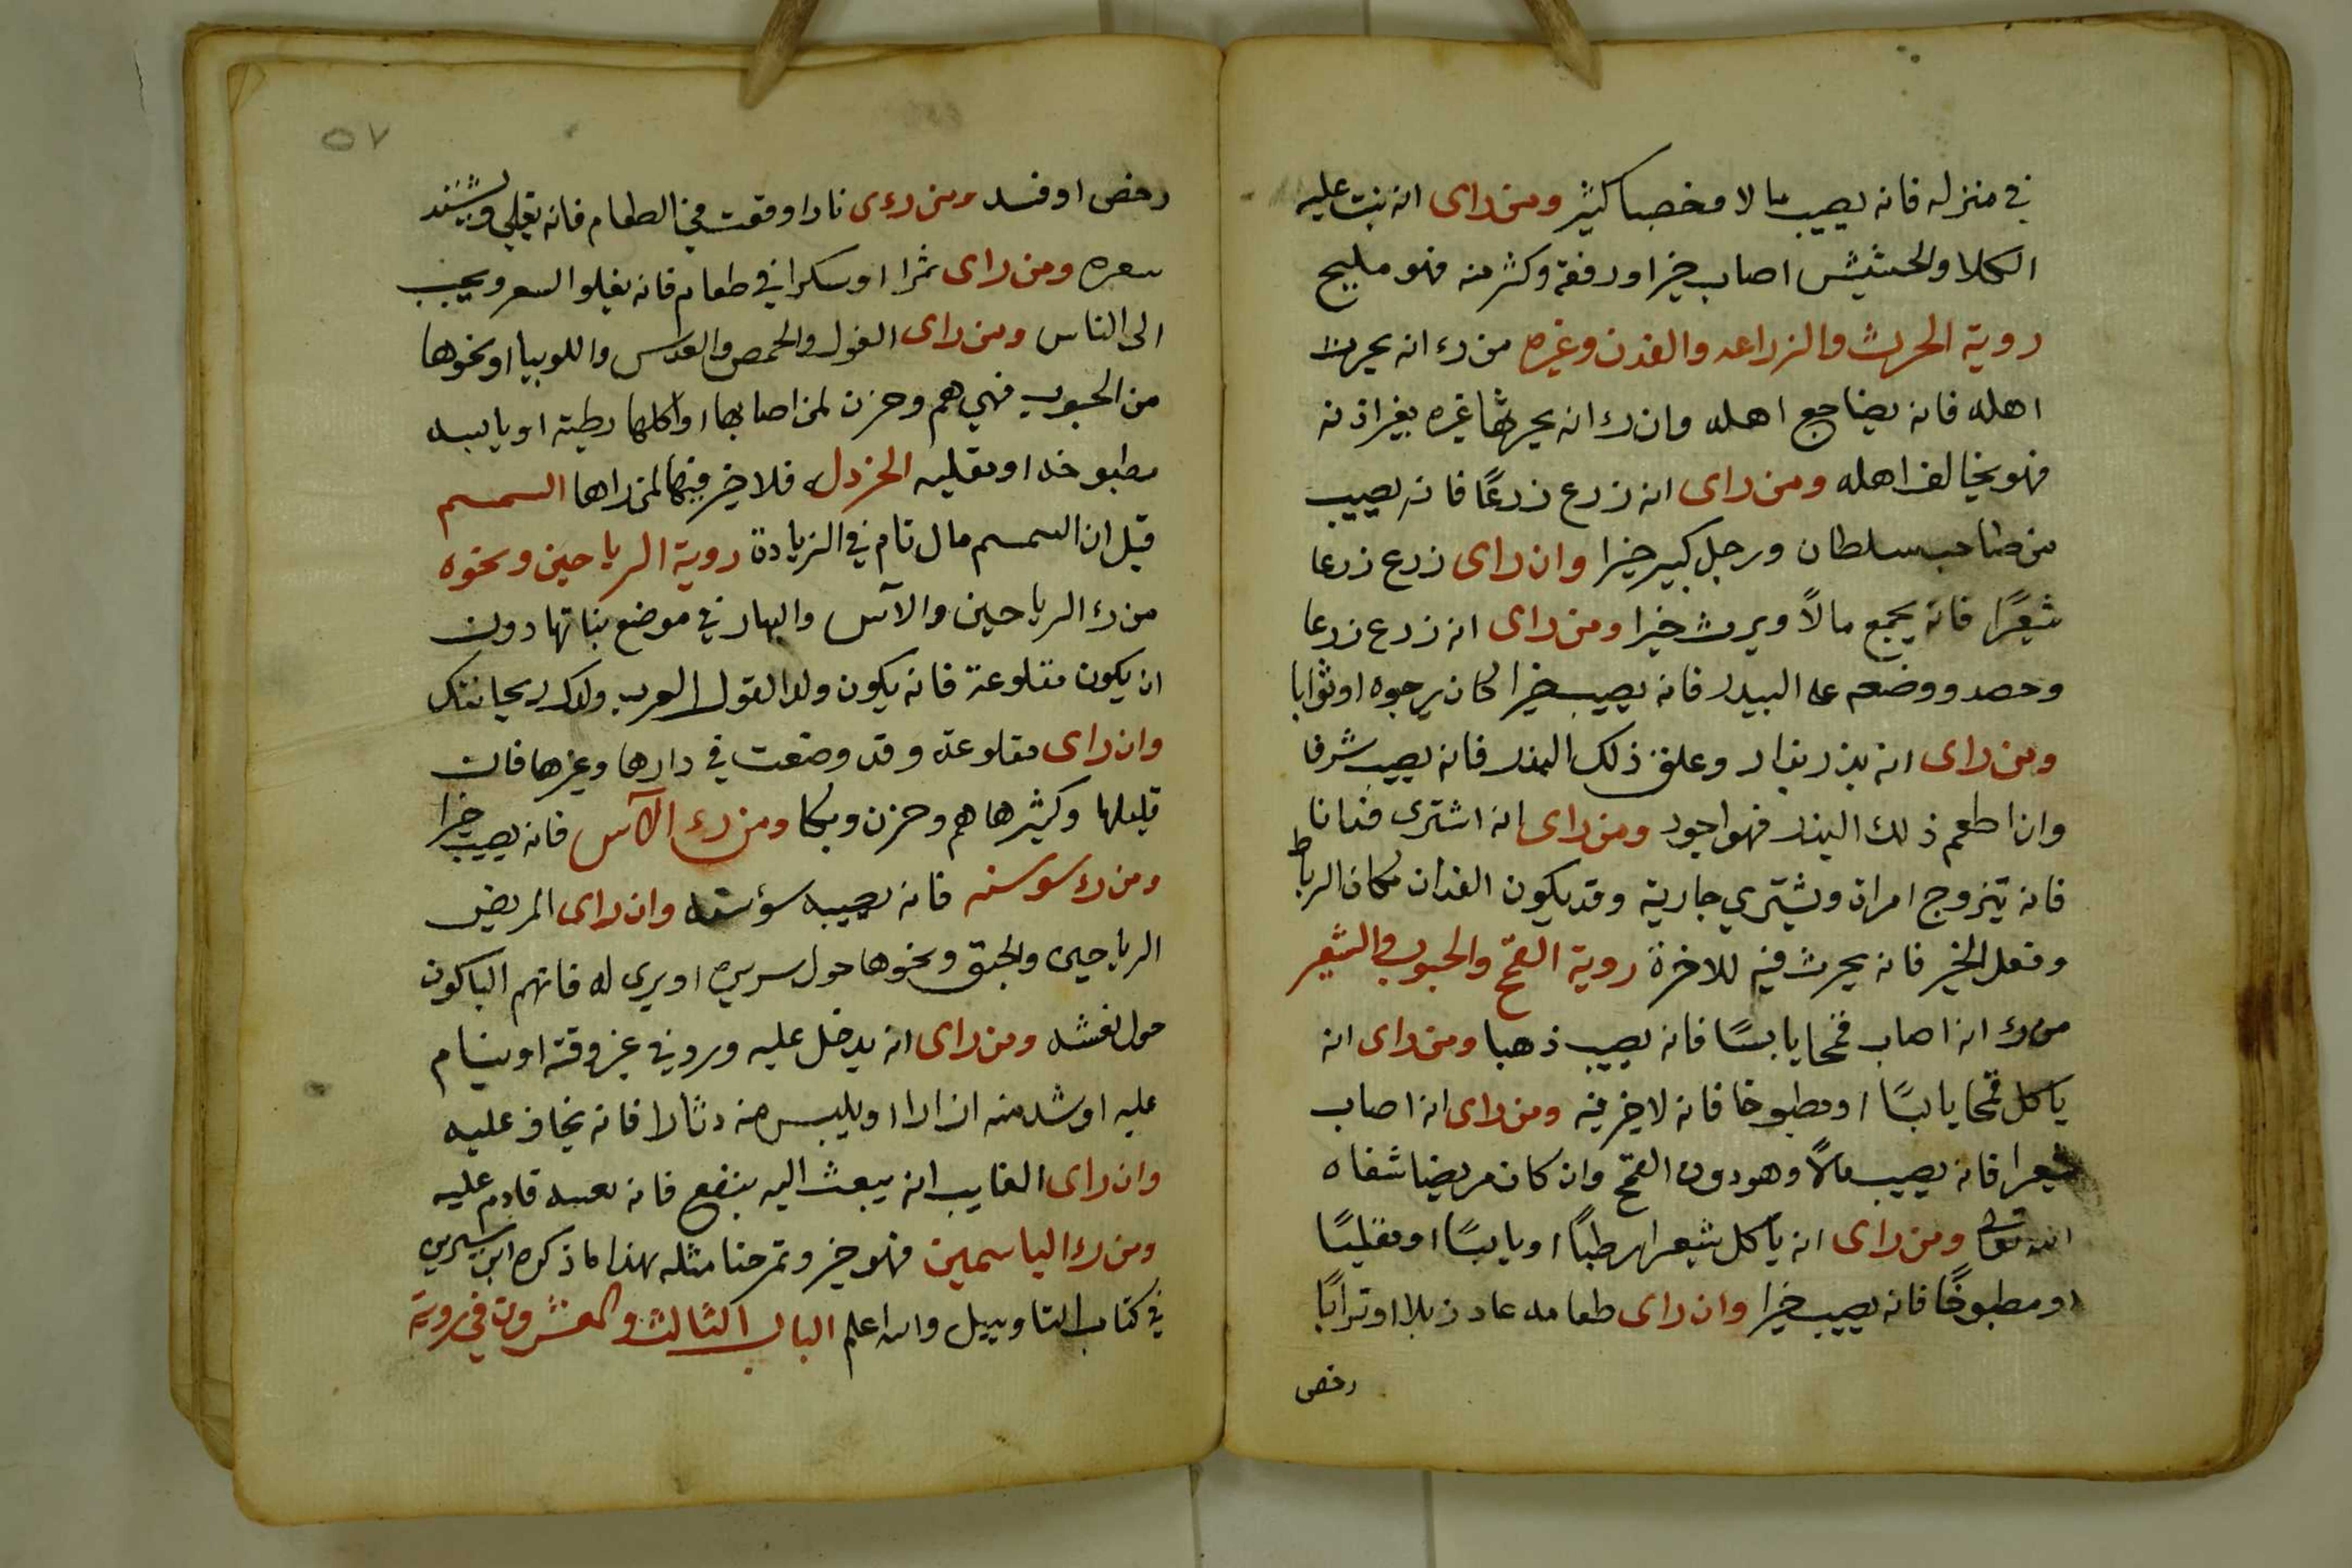 في منزله فانه يصيب مالا وخصبا كثير ومن راى انه نبت عليه
الكلا والحشيش اصاب خيرا ورفعة وكثر منه فهو مليح
روية الحرث والزراعه والفدن وغيره من رء انه يحرث
اهله فانه يضاجع اهله وان رء انه يحرثها غيره بغير اذنه
فهو يخالف اهله ومن راى انه زرع زرعًا فانه يصيب
من صاحب سلطان ورجل كبير خيرا وان راى زرع زرعا
شعيرًا فانه يجمع مالاً ويرث خيرا ومن راى انه زرع زرعا
وحصد ووضعه على البيدر فانه يصيب خيرا كان يرجوه او ثوابا
ومن راى انه بذر بذار وعلق ذلك البذر فانه يصيب شرفا
وان اطعم ذلك البذر فهو اجود ومن راى انه اشترى فدانا
فانه يتزوج امراة ويشتري جارية وقد يكون الفدان مكان الرباط
وفعل الخير فانه يحرث فيه للاخرة روية القمح والحبوب والشعير
من رء انه اصاب قمحا يابسًا فانه يصيب ذهبا ومن راى انه
ياكل قمحا يابسًا او مطبوخا فانه لا خير فيه ومن راى انه اصاب
شعيرا فانه يصيب مالاً وهو دون القمح وان كان مريضا شفاه
الله تعالى ومن راى انه يأكل شعيرا رطبًا او يابسًا او مقليًا
او مطبوخًا فانه يصيب خيرا وان راى طعامه عاد زبلا او ترابًا
رخص
٥٧
رخص او فسد ومن رءى نارا وقعت في الطعام فانه يغلي ويشتد
سعره ومن راى تمرا او سكرا في طعام فانه يغلوا السعر ويحبب
الى الناس ومن راى الفول والحمص والعدس واللوبيا او نحوها
من الحبوب فهي هم وحزن لمن اصابها او اكلها رطبة او يابسه
مطبوخه او مقليه الخردل فلا خير فيها لمن راها السمسم
قيل ان السمسم مال نام في الزيادة روية الرياحين ونحوه
من رء الرياحين والآس والبهار في موضع بناتها دون
ان يكون مقلوعة فانه يكون ولد القول العرب ولدك ريحانتك
وان راى مقلوعة وقد وضعت في دارها وغيرها فان
قليلها وكثيرها هم وحزن وبكا ومن رء الآس فانه يصيب خيرا
ومن رء سوسنه فانه يصيبه سؤ سنه وان راى المريض
الرياحين والحبق ونحوها حول سريره او يرى له فانهم الباكون
حول نعشه ومن راى انه يدخل عليه ورد في غير وقته او ينام
عليه او شد منه ازارا او يلبس منه دثارا فانه يخاف عليه
وان راى الغايب انه يبعث اليه بنفع فانه نعيه قادم عليه
ومن رء الياسمين فهو خير وتمرحنا مثله بهذا ما ذكره ابن سيرين
في كتاب التاوييل والله اعلم الباب الثالث والعشرون في روية